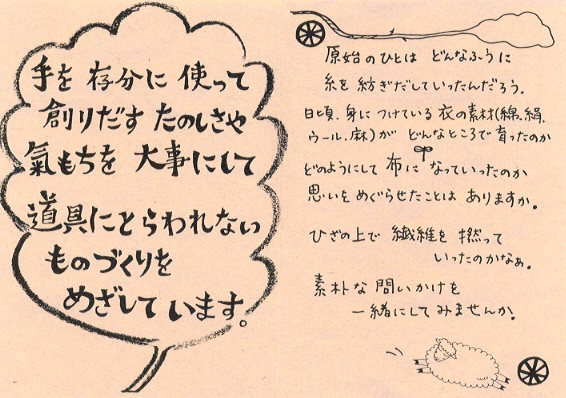 手を存分に使って
創りだすたのしさや
氣もちを大事にして
道具にとらわれない
ものづくりを
めざしています。
原始のひとは どんなふうに
糸を紡ぎだしていったんだろう。
日頃、身につけている衣の素材(綿、絹、
ウール、麻)が どんなところで育ったのか
どのようにして布になっていったのか
思いをめぐらせたことは ありますか。
ひざの上で 繊維を撚って
いったのかなぁ。
素朴な問いかけを
一緒にしてみませんか。